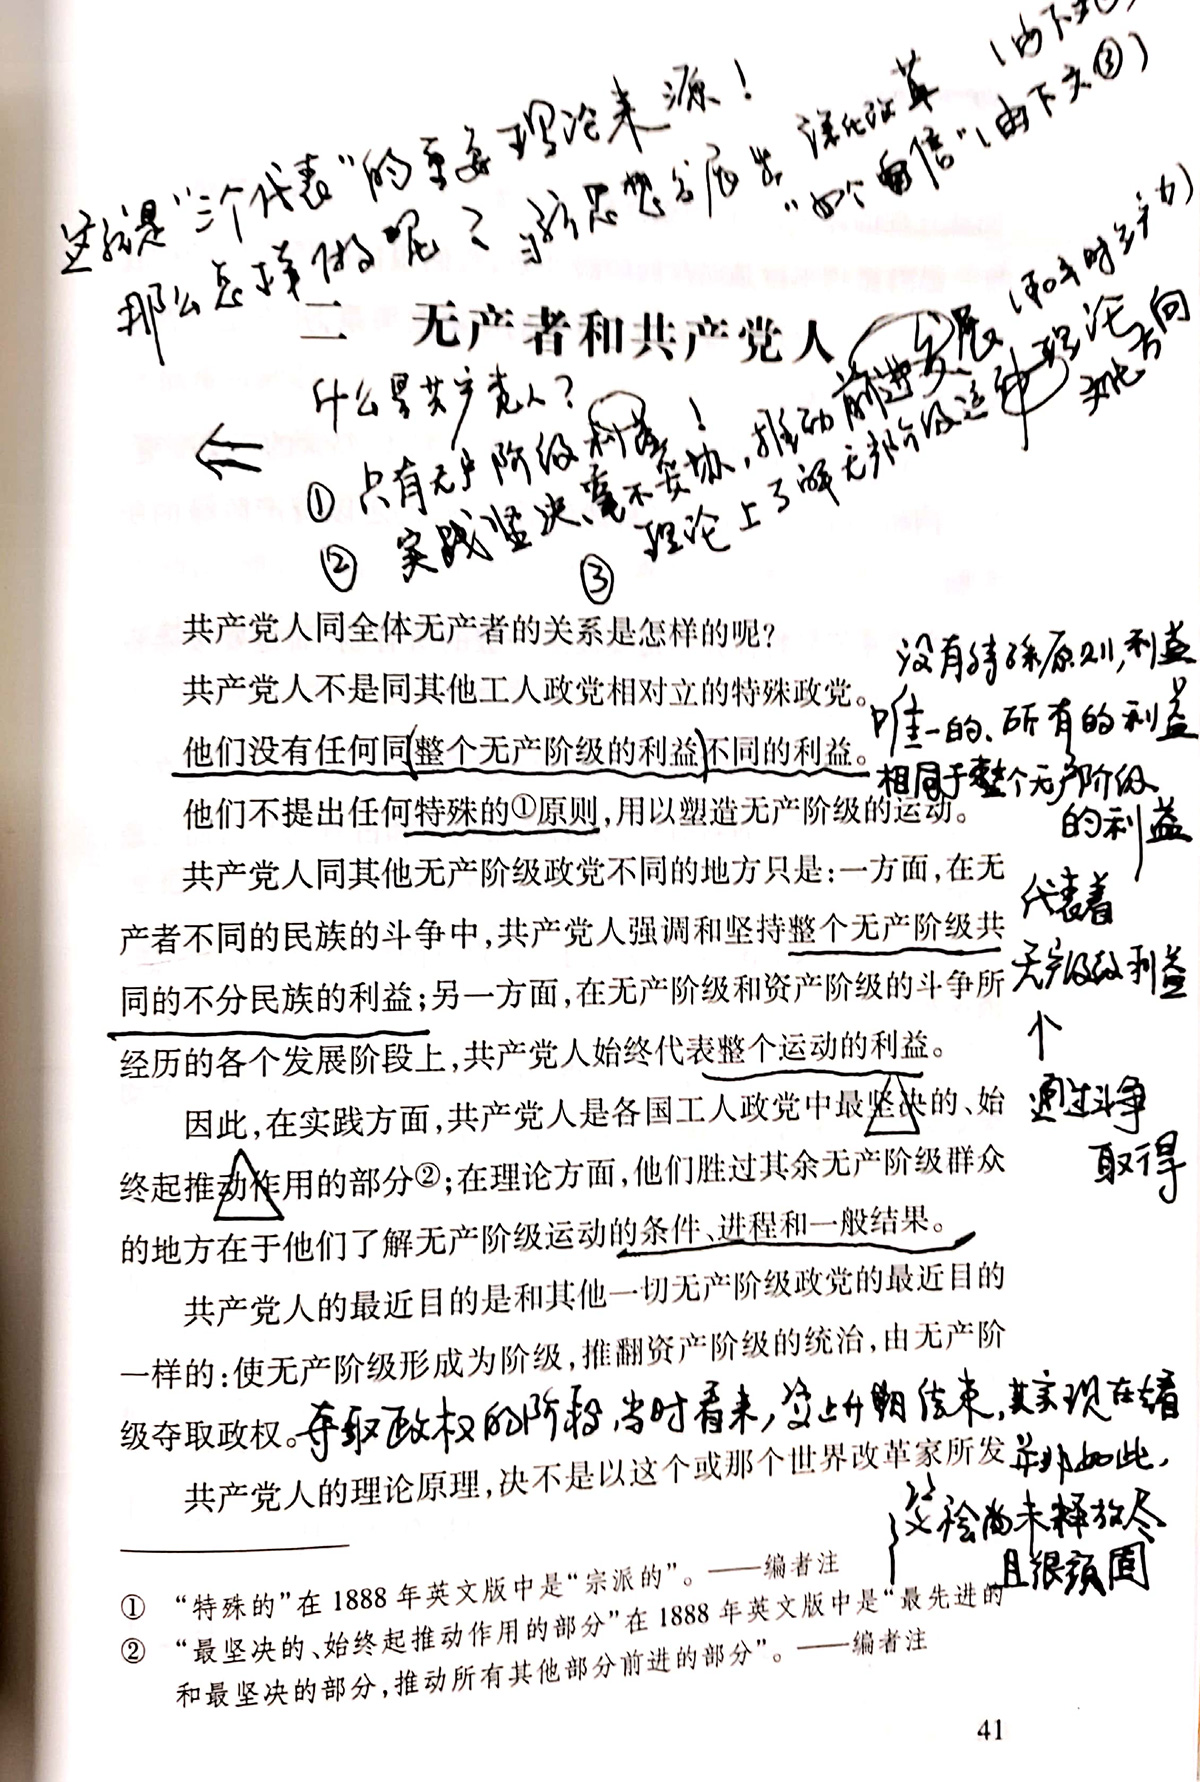 这就是“三个代表”的重要理论来源！
那么怎样做呢？当际思想发展出 深化改革 （由下文
“四个自信”（由下文③）
二 无产者和共产党人
什么是共产党人？
① 只有无产阶级利益！
② 实践坚决、毫不妥协，推动前进发展
③ 理论上了解无产阶级运动 理论
方向
共产党人同全体无产者的关系是怎样的呢？
共产党人不是同其他工人政党相对立的特殊政党。
他们没有任何同整个无产阶级的利益不同的利益。
他们不提出任何特殊的①原则，用以塑造无产阶级的运动。
没有特殊原则，利益
唯一的、所有的利益
相同于整个无产阶级
的利益
共产党人同其他无产阶级政党不同的地方只是：一方面，在无
产者不同的民族的斗争中，共产党人强调和坚持整个无产阶级共
同的不分民族的利益；另一方面，在无产阶级和资产阶级的斗争所
经历的各个发展阶段上，共产党人始终代表整个运动的利益。
代表着
无产阶级利益
个
通过斗争
取得
因此，在实践方面，共产党人是各国工人政党中最坚决的、始
终起推动作用的部分②；在理论方面，他们胜过其余无产阶级群众
的地方在于他们了解无产阶级运动的条件、进程和一般结果。
共产党人的最近目的是和其他一切无产阶级政党的最近目的
一样的：使无产阶级形成为阶级，推翻资产阶级的统治，由无产阶
级夺取政权。
夺取政权的阶段，当时看来，资上升期结束，其实现在看
并非如此，
资 尚未释放尽
且很顽固
共产党人的理论原理，决不是以这个或那个世界改革家所发
① “特殊的”在1888年英文版中是“宗派的”。——编者注
② “最坚决的、始终起推动作用的部分”在1888年英文版中是“最先进的
和最坚决的部分，推动所有其他部分前进的部分”。——编者注
41